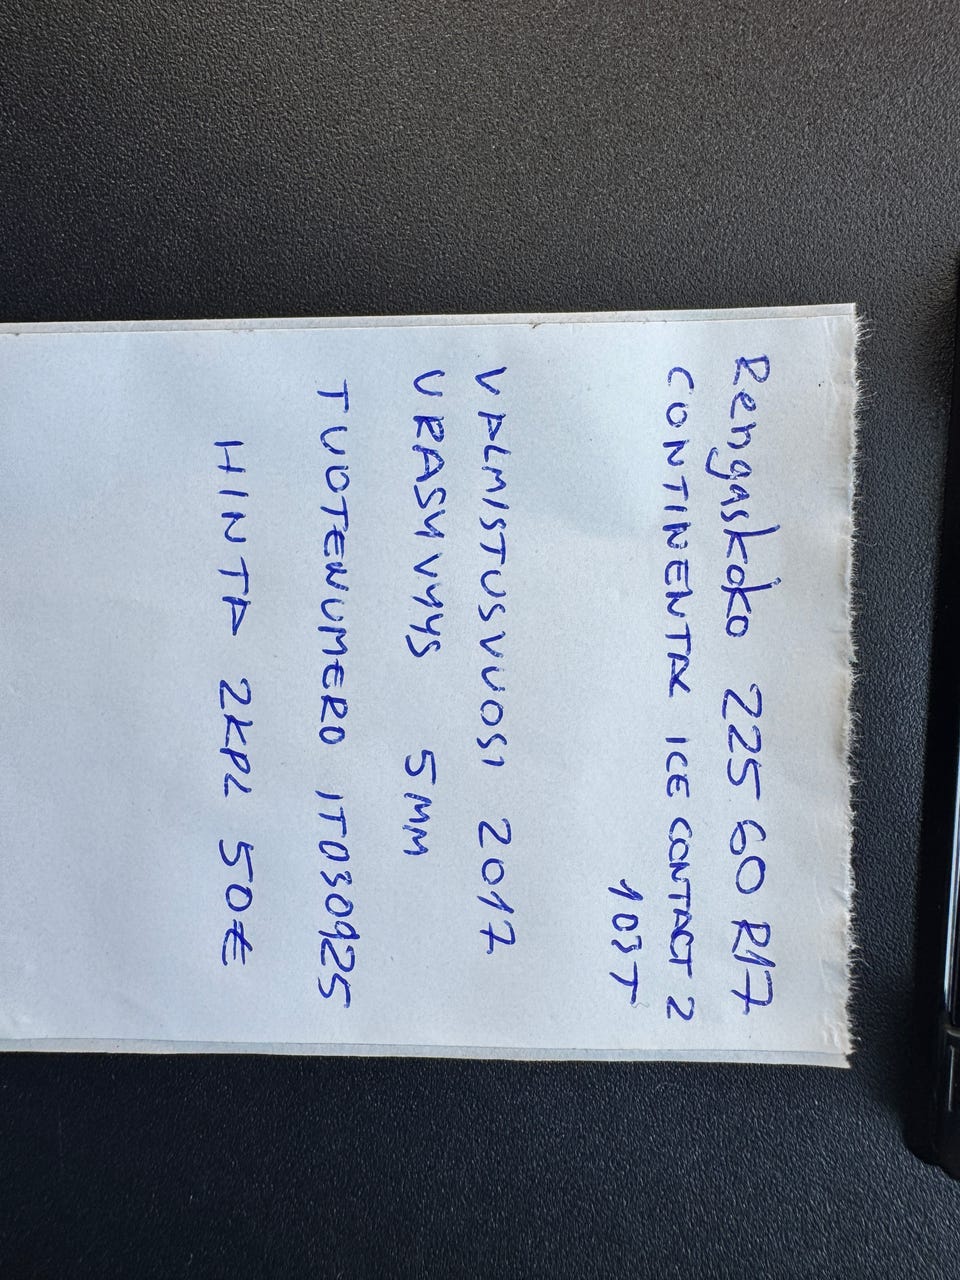 Rengaskoko 225 60 R17
CONTINENTAL ICE CONTACT 2
103T
VALMISTUSVUOSI 2017
URASYVYYS 5MM
TUOTENUMERO IT030925
HINTA 2KPL 50€